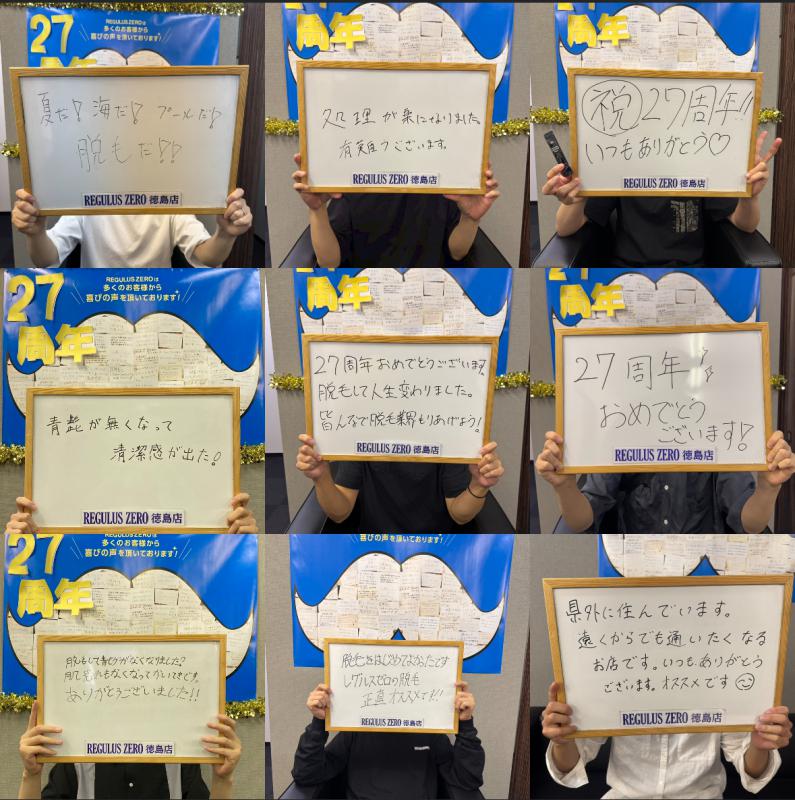 27
周年
REGULUS ZEROは
多くのお客様から
喜びの声を頂いております!
夏だ! 海だ! プールだ!
脱毛だ!!
REGULUS ZERO 徳島店
周年
処理が楽になりました。
有難うございます。
REGULUS ZERO 徳島店
周年
祝 27周年!!
いつもありがとう♡
REGULUS ZERO 徳島店
27
周年
REGULUS ZEROは
多くのお客様から
喜びの声を頂いております!
青髭が無くなって
清潔感が出た!
REGULUS ZERO 徳島店
周年
27周年おめでとうございます。
脱毛して人生変わりました。
皆んなで脱毛業界もりあげよう!
REGULUS ZERO 徳島店
27
周年
27周年!
おめでとう
ございます!
REGULUS ZERO 徳島店
27
周年
REGULUS ZEROは
多くのお客様から
喜びの声を頂いております!
脱もして青ひげがなくなりました?
肌て れもなくなって いてきです。
ありがとうございました!!
REGULUS ZERO 徳島店
喜びの声を頂いております!
脱毛をはじめてよかったです
レグルスゼロの脱毛
正直オススメです!!
REGULUS ZERO 徳島店
県外に住んでいます。
遠くからでも通いたくなる
お店です。いつもありがとう
ございます。オススメです
REGULUS ZERO 徳島店